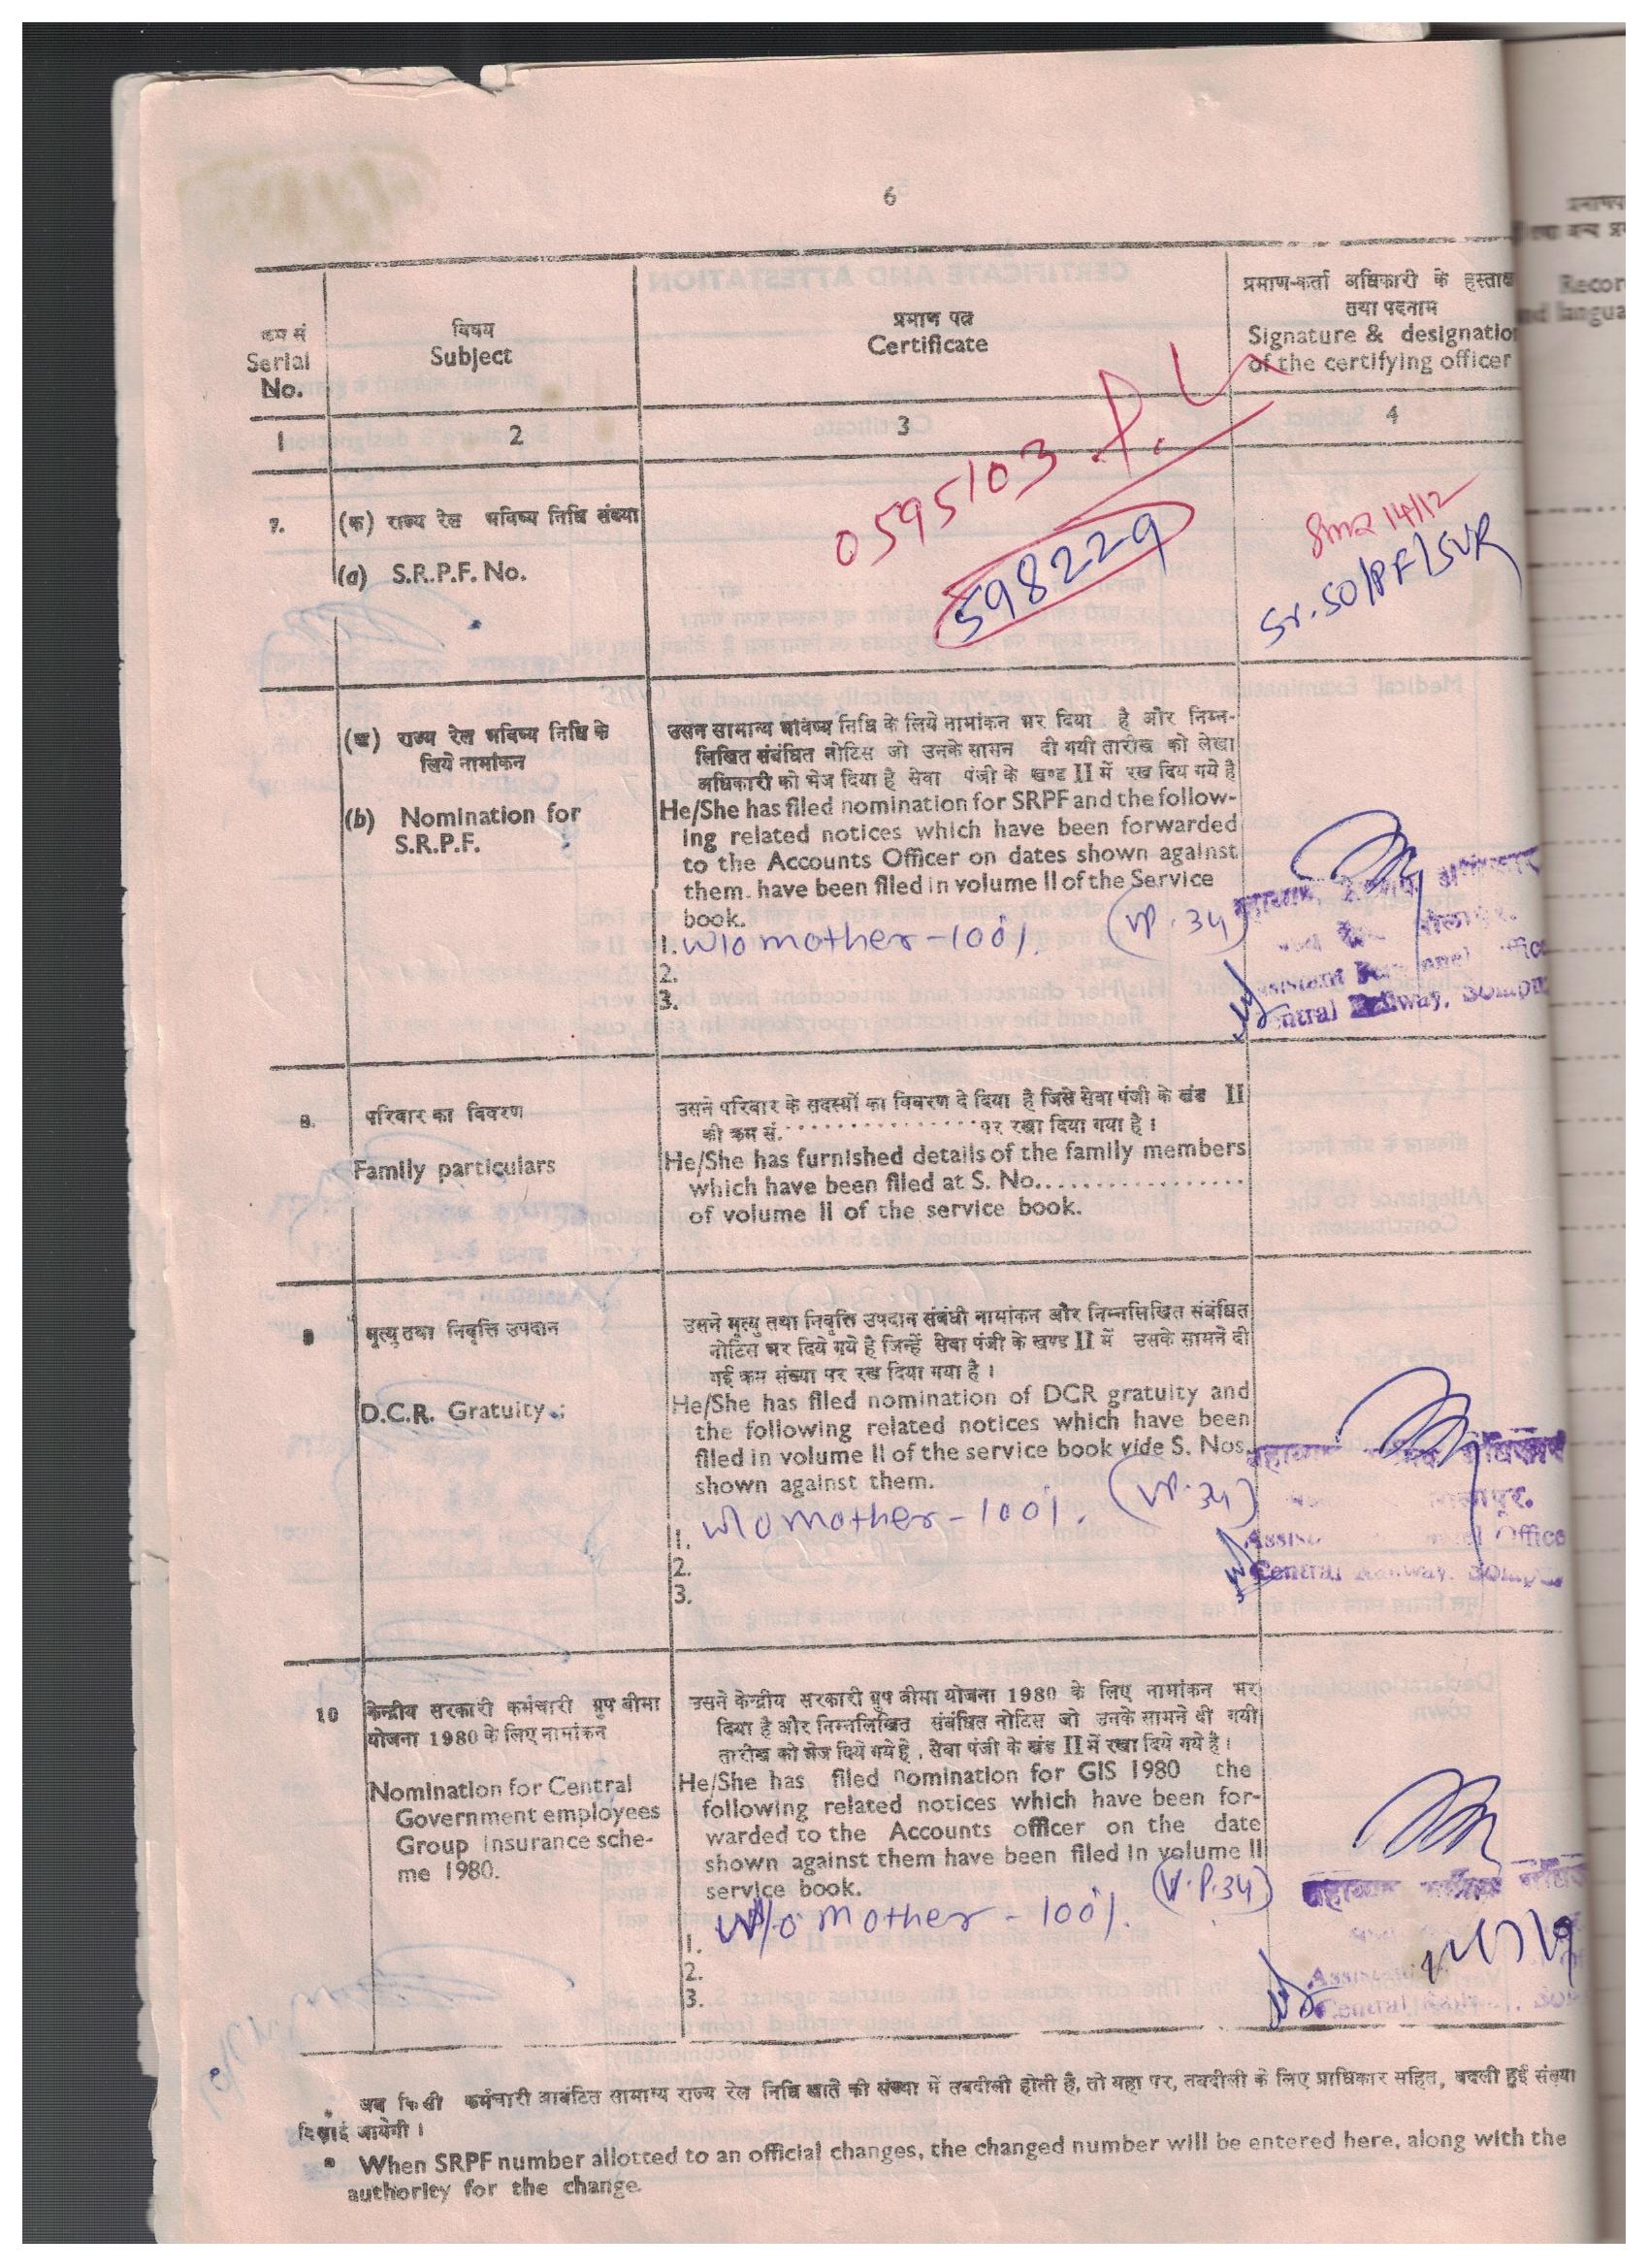 6
क्रम सं
Serial
No.
विषय
Subject
प्रमाण पत्र
Certificate
प्रमाण-कर्ता अधिकारी के
तथा पदनाम
Signature & designatio
of the certifying officer
1
2
3
4
7.
(क) राज्य रेल भविष्य निधि संख्या
(a) S.R.P.F. No.
0595103
598229
14/12
Sr.SO/PF/SUR
(ख) राज्य रेल भविष्य निधि के
लिये नामांकन
(b) Nomination for
S.R.P.F.
उसन सामान्य भविष्य निधि के लिये नामांकन भर दिया है और निम्न-
लिखित संबंधित नोटिस जो उनके सामन दी गयी तारीख को लेखा
अधिकारी को भेज दिया है सेवा पंजी के खण्ड II में रख दिय गये है
He/She has filed nomination for SRPF and the follow-
ing related notices which have been forwarded
to the Accounts Officer on dates shown against
them. have been filed in volume II of the Service
book.
1. W/o mother - 100%. (VP. 34)
2.
3.
Assistant Personnel Office
Central Railway, Solapu
8.
परिवार का विवरण
Family particulars
उसने परिवार के सदस्यों का विवरण दे दिया है जिसे सेवा पंजी के खंड II
की क्रम सं. .................. पर रखा दिया गया है ।
He/She has furnished details of the family members
which have been filed at S. No..................
of volume II of the service book.
9
मृत्यु तथा निवृत्ति उपदान
D.C.R. Gratuity :
उसने मृत्यु तथा निवृत्ति उपदान संबंधी नामांकन और निम्नलिखित संबंधित
नोटिस भर दिये गये है जिन्हें सेवा पंजी के खण्ड II में उसके सामने दी
गई क्रम संख्या पर रख दिया गया है ।
He/She has filed nomination of DCR gratuity and
the following related notices which have been
filed in volume II of the service book vide S. Nos.
shown against them.
1. W/o mother - 100%. (VP. 34)
2.
3.
Office
Central Railway, Solapu
10
केन्द्रीय सरकारी कर्मचारी ग्रुप बीमा
योजना 1980 के लिए नामांकन
Nomination for Central
Government employees
Group Insurance sche-
me 1980.
उसने केन्द्रीय सरकारी ग्रुप बीमा योजना 1980 के लिए नामांकन भर
दिया है और निम्नलिखित संबंधित नोटिस जो उनके सामने दी गयी
तारीख को भेज दिये गये हे , सेवा पंजी के खंड II में रखा दिये गये है ।
He/She has filed nomination for GIS 1980 the
following related notices which have been for-
warded to the Accounts officer on the date
shown against them have been filed in volume II
service book.
1. W/o mother - 100%. (V.P.34)
2.
3.
Central
जब किसी कर्मचारी आबंटित सामान्य राज्य रेल निधि खाते की संख्या में तबदीली होती है, तो यहा पर, तबदीली के लिए प्राधिकार सहित, बदली हुई संख्या
दिखाई जायेगी ।
* When SRPF number allotted to an official changes, the changed number will be entered here, along with the
authority for the change.
Recor
nd langua